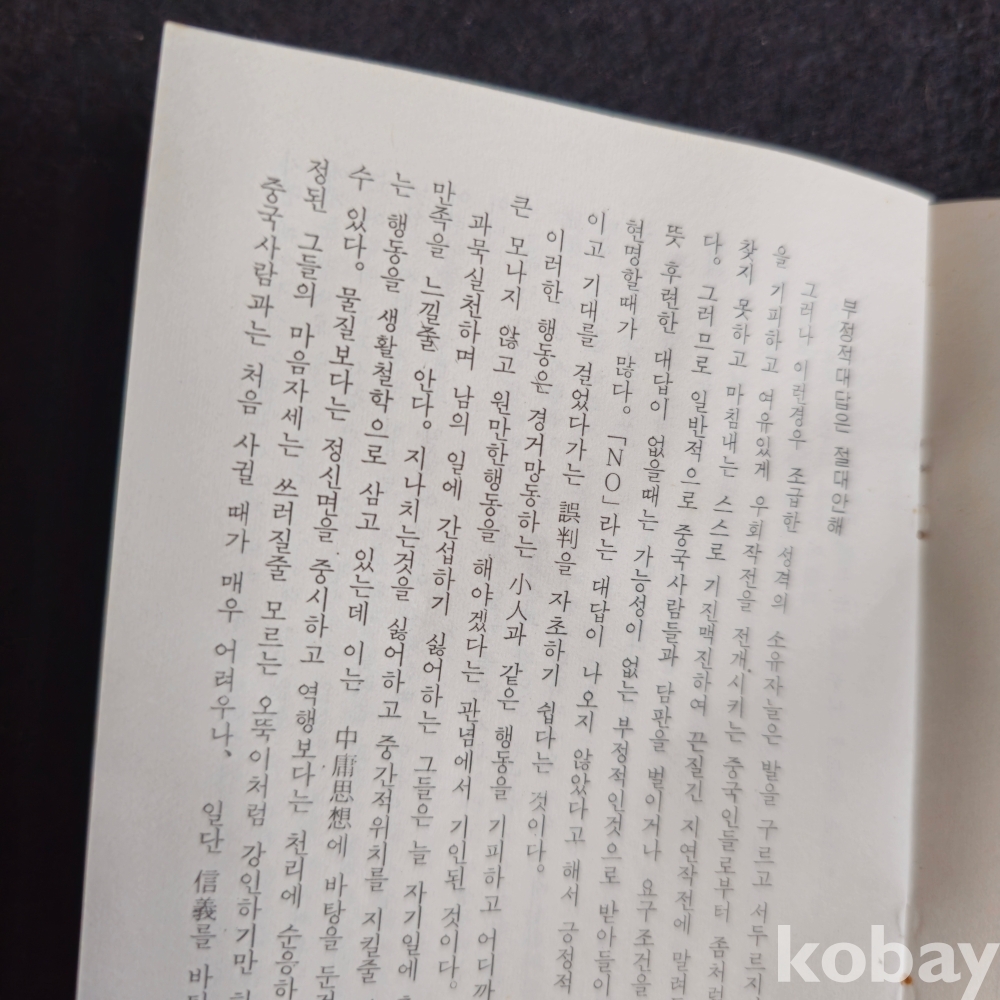 부정적대답은 절대안해
그러나 이런경우 조급한 성격의 소유자는 발을 구르고 서두르지
을 기피하고 여유있게 우회작전을 전개시키는 중국인들로부터 좀처럼
찾지 못하고 마침내는 스스로 기진맥진하여 끈질긴 지연작전에 말려
다。 그러므로 일반적으로 중국사람들과 담판을 벌이거나 요구조건을
뜻 후련한 대답이 없을때는 가능성이 없는 부정적인것으로 받아들이
현명할때가 많다。 「NO」라는 대답이 나오지 않았다고 해서 긍정적
이고 기대를 걸었다가는 誤判을 자초하기 쉽다는 것이다。
이러한 행동은 경거망동하는 小人과 같은 행동을 기피하고 어디까
큰 모나지 않고 원만한행동을 해야겠다는 관념에서 기인된 것이다。
과묵실천하며 남의 일에 간섭하기 싫어하는 그들은 늘 자기일에
만족을 느낄줄 안다。 지나치는것을 싫어하고 중간적위치를 지킬줄
는 행동을 생활철학으로 삼고 있는데 이는 中庸思想에 바탕을 둔
수 있다。 물질보다는 정신면을 중시하고 역행보다는 천리에 순응하
정된 그들의 마음자세는 쓰러질줄 모르는 오뚝이처럼 강인하기만
중국사람과는 처음 사귈 때가 매우 어려우나、 일단 信義를 바
kobay